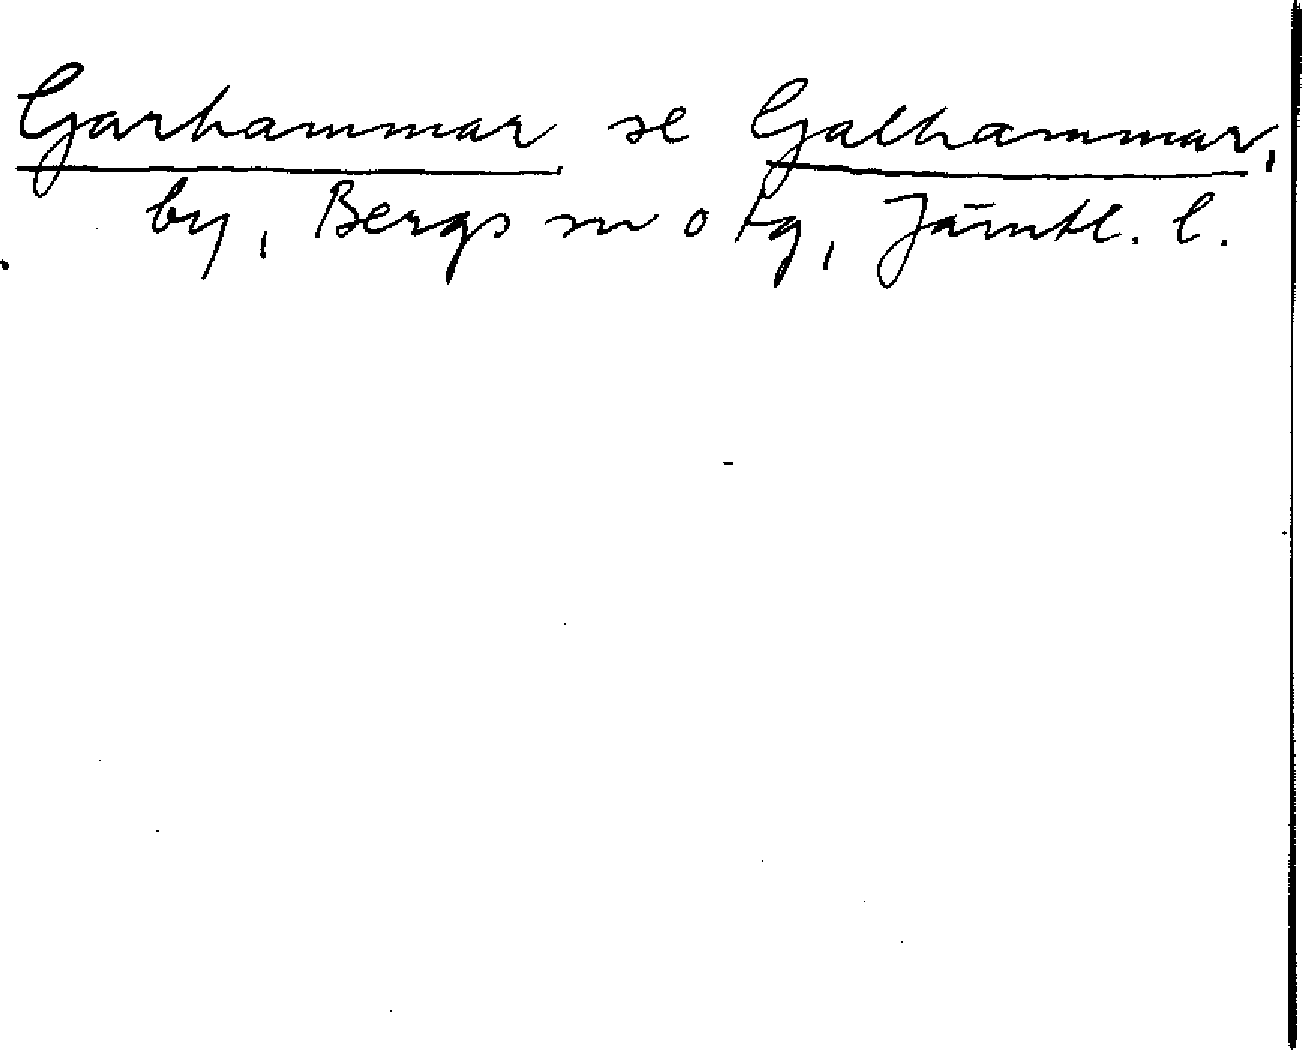 Garhammar se Galhammar,
by, Bergs sn o tg, Jämtl. l.